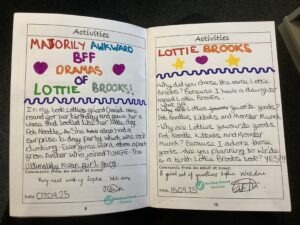 Activities
MAJORILY AWKWARD
BFF
DRAMAS
OF
LOTTIE BROOKS!
In my book Lotties friend Daniel come
round for her birthday and gave her a
that looked like her dog
Pot Noodle. As she had a
surprise to party which was rock
climbing. Everyone went apart
from Amber who joined TUAGG. The
Ultimately mean girl gang.
Comments from an adult at home
Very neat writing Sophie. Well done
Date: 07.09.25
9
Activities
LOTTIE BROOKS
Why did you choose the name Lottie
Brooks? Because I have a daughter
named Lottie Brooks.
What are Lotties favourite foods?
Pot Noodles, KitKats, and Monster Munch.
Why are Lotties favourite foods
Pot Noodles, KitKats, and Monster
Munch? Because I adore those
foods. Are you planning to write
a tenth Lottie Brooks book? YES!!!
Comments from an adult at home
A great set of questions Sophie. Well done
Date: 15.09.25
10